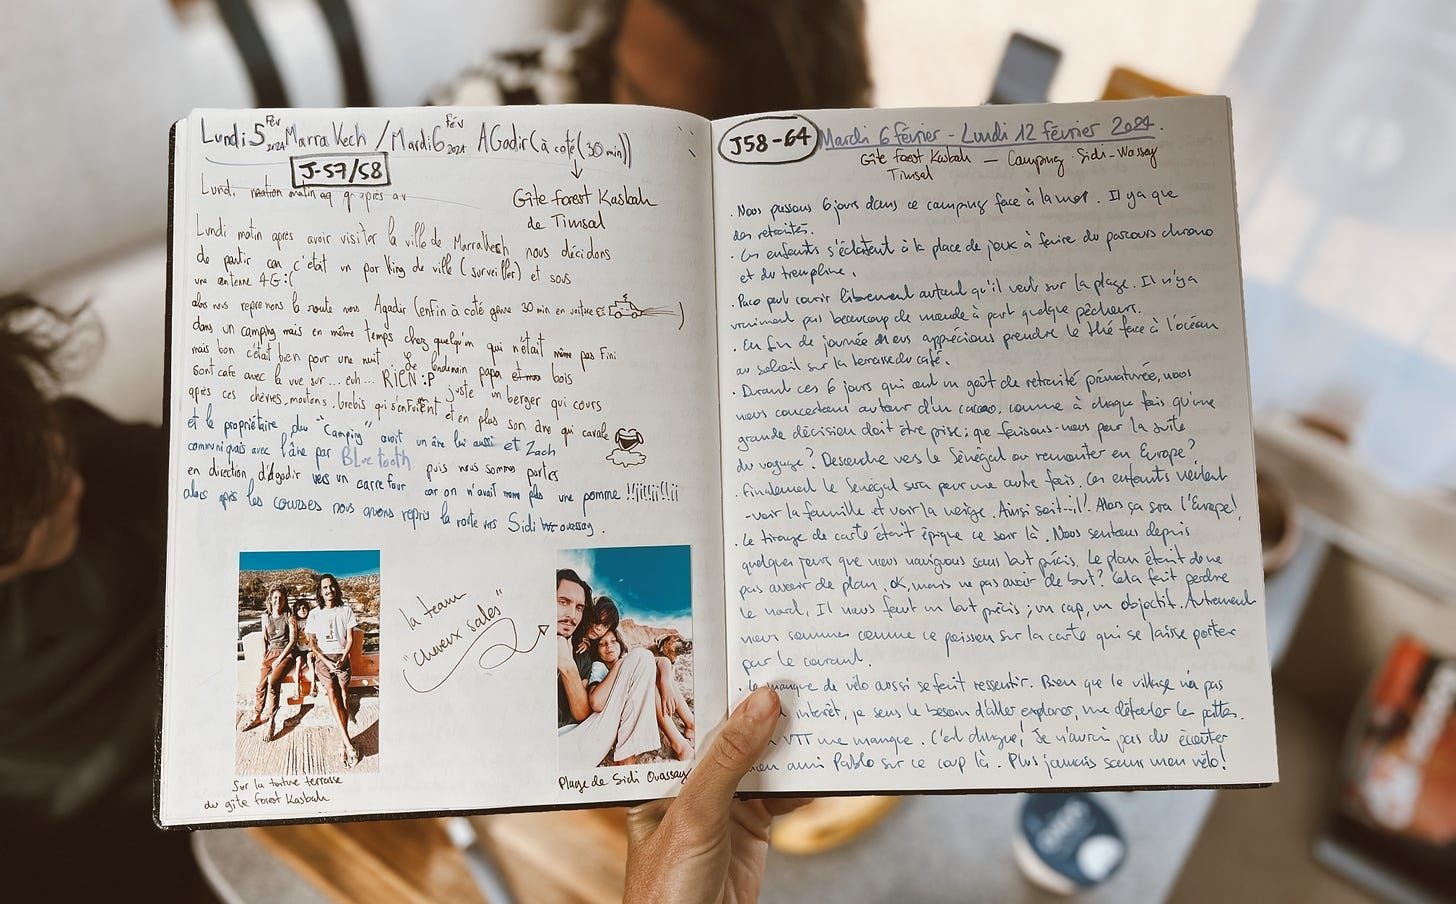 Lundi 5 Fév 2024 Marrakech / Mardi 6 fév 2024 AGadir (à coté (30 min))
J-57/58
Gîte forest Kasbah
de Timsal
Lundi matin matin aq qr après av
Lundi matin après avoir visiter la ville de Marrakesh, nous décidons
de partir car c'était un parking de ville (surveiller) et sous
une antenne 4G :(
alors nous reprenons la route vers Agadir (enfin à coté genre 30 min en voiture )
dans un camping mais en même temps chez quelqu'un qui n'était même pas Fini
mais bon c'était bien pour une nuit. Le lendemain papa et bois
sont café avec la vue sur ... euh ... RIEN :P juste un berger qui cours
après ces chèvres, moutons, brebis qui s'enfuient et en plus son âne qui cavale
et le propriétaire du "Camping" avait un âne lui aussi et Zach
communiquais avec l'âne par BLuetooth puis nous sommes parties
en direction d'Agadir vers un carrefour car on n'avait même plus une pomme !!¡¡!!¡¡!!¡¡
alors après les courses nous avons repris la route vers Sidi ouassay.
la team
"cheveux sales"
Sur la toiture terrasse
du gîte forest Kasbah
Plage de Sidi Ouassay
J58-64 Mardi 6 février - Lundi 12 février 2024.
Gîte forest Kasbah — Camping Sidi-Wassay
Timsal
. Nous passons 6 jours dans ce camping face à la mer. Il y a que
des retraités.
. Les enfants s'éclatent à la place de jeux à faire du parcours chrono
et du trempline.
. Paco peut courir librement autant qu'il veut sur la plage. Il n'y a
vraiment pas beaucoup de monde à part quelque pêcheurs.
. En fin de journée nous apprécions prendre le thé face à l'océan
au soleil sur la terrasse du café.
. Durant ces 6 jours qui ont un goût de retraité prématurée, nous
nous concertons autour d'un cacao, comme à chaque fois qu'une
grande décision doit être prise; que faisons-nous pour la suite
du voyage? Descendre vers le Sénégal ou remonter en Europe?
. Finalement le Sénégal sera pour une autre fois. Les enfants veulent
-voir la famille et voir la neige. Ainsi soit-il! Alors ça sera l'Europe!
. Le tirage de carte était épique ce soir là. Nous sentons depuis
quelques jours que nous naviguons sans but précis. Le plan était de ne
pas avoir de plan, ok, mais ne pas avoir de but? Cela fait perdre
le nord. Il nous faut un but précis; un cap, un objectif. Autrement
nous sommes comme ce poisson sur la carte qui se laisse porter
par le courant.
. Le manque de vélo aussi se fait ressentir. Bien que le village n'a pas
intérêt, je sens le besoin d'aller explorer, me défouler les pattes.
VTT me manque. C'est dingue! Je n'aurai pas du écouter
mon ami Pablo sur ce coup là. Plus jamais sans mon vélo!